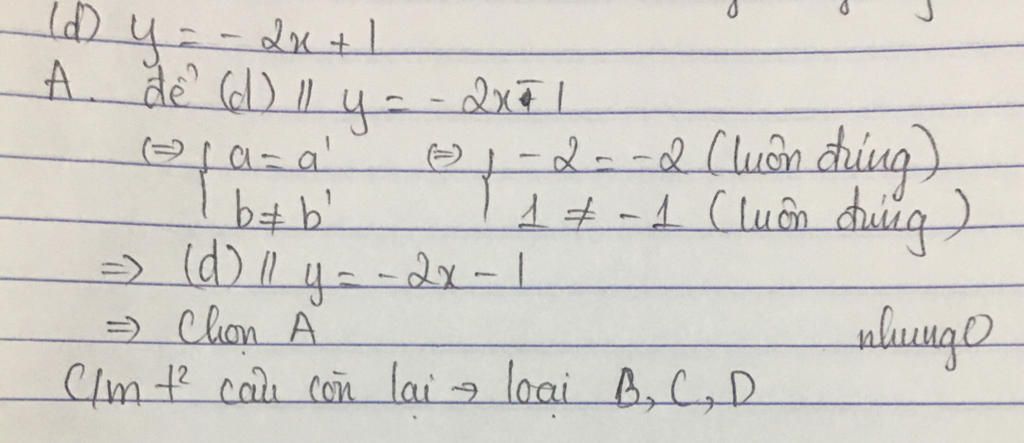 (d) y = - 2x + 1
A. để (d) // y = - 2x - 1
⇔ { a = a' ⇔ { - 2 = - 2 (luôn đúng)
b ≠ b' 1 ≠ - 1 (luôn đúng)
⇒ (d) // y = - 2x - 1
⇒ Chọn A nhungo
C/m t² câu còn lại → loại B, C, D